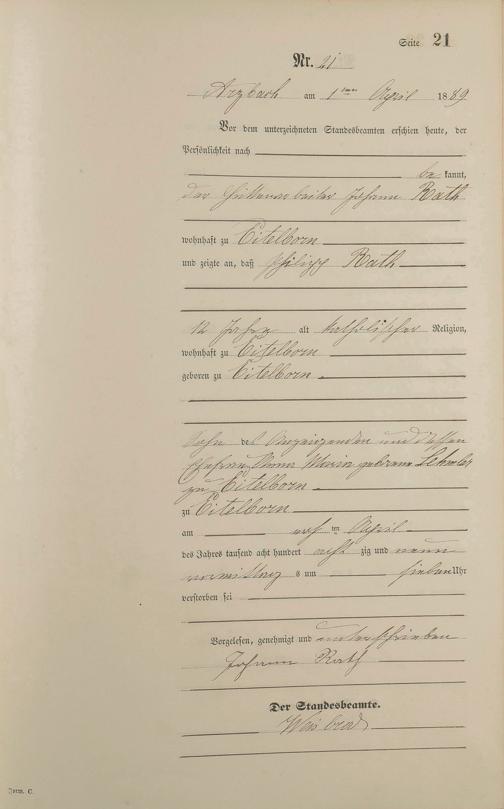 Seite 21
Nr. 21
Arzbach am 1ten April 1889
Vor dem unterzeichneten Standesbeamten erschien heute, der
Persönlichkeit nach
be kannt,
der Hüttenarbeiter Johann Rath
wohnhaft zu Eitelborn
und zeigte an, daß Philipp Rath
12 Jahre alt katholischer Religion,
wohnhaft zu Eitelborn
geboren zu Eitelborn
Sohn des Anzeigenden und dessen
Ehefrau Anna Maria geborene
zu Eitelborn
zu Eitelborn
am ersten April
des Jahres tausend acht hundert acht zig und neun
vormittag s um sieben Uhr
verstorben sei
Vorgelesen, genehmigt und unterschrieben
Johann Rath
Der Standesbeamte.
Weisbrod
Form. C.